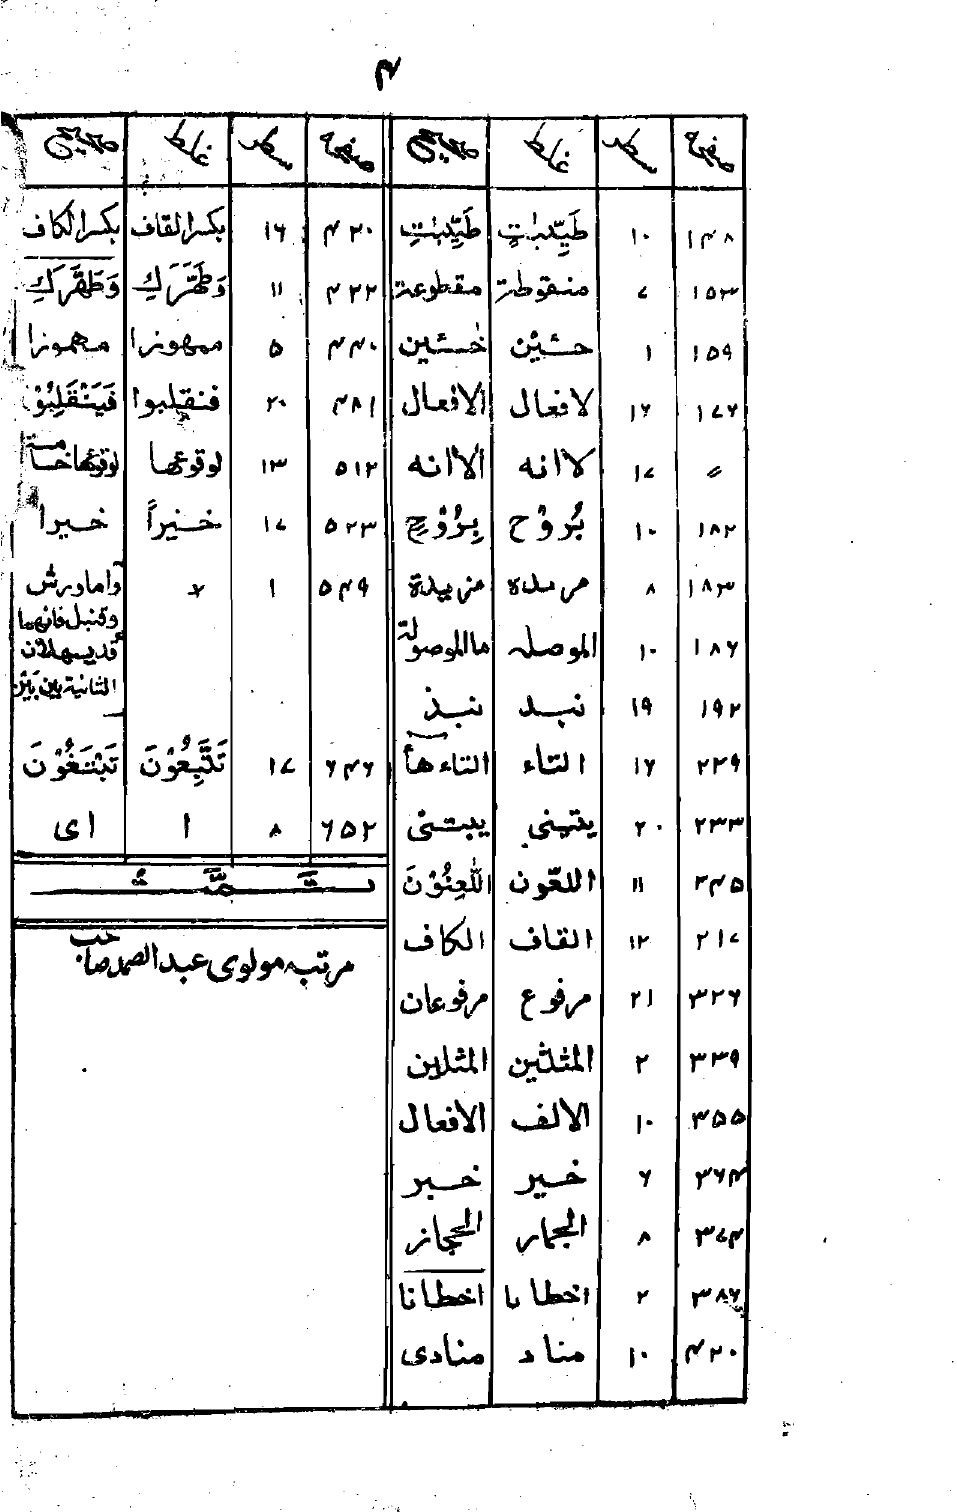 ۴
صفحہ سطر غلط صحیح
۱۴۸ ۱۰ طَيِّبٰتٍ طَيِّبٰتِ
۱۵۳ ۷ منقوطة مقطوعة
۱۵۹ ۱ حشيْن خٰشئين
۱۷۶ ۱۶ لافعال الافعال
〃 ۱۷ لاانه الاانه
۱۸۲ ۱۰ بُرُوْح بِرُوْحٍ
۱۸۳ ۸ مريده مزيدة
۱۸۶ ۱۰ الموصله ماالموصولة
۱۹۲ ۱۹ نبد نبذ
۲۲۹ ۱۶ التاء التاءهأ
۲۳۳ ۲۰ يبتنى
۲۴۵ ۱۱ اللعّون اللّٰعِنُوْنَ
۲۱۷ ۱۲ القاف الكاف
۳۲۶ ۲۱ مرفوع مرفوعان
۳۳۹ ۲ المثلثين المثلين
۳۵۵ ۱۰ الالف الافعال
۳۶۴ ۶ خير خبر
۳۷۴ ۸ الجمار الحجاز
۳۸۶ ۲ اخطايا اخطانا
۴۲۰ ۱۰ مناد منادى
صفحہ سطر غلط صحیح
۴۲۰ ۱۶ بكسرالقاف بكسرالكاف
۴۲۲ ۱۱ وَطَهَّرَكِ وَطَهَّرَكِ
۴۴۰ ۵ ممهوزا مهموزا
۴۸۱ ۲۰ فنقلبوا فَيَنْقَلِبُوْا
۵۱۲ ۱۳ لوقوعها لوقوعهاخامسة
۵۲۳ ۱۷ خنيراً خبرا
۵۴۹ ۱ لا واماورش
وقنبل فانهما
قديسهلان
الثانية بين بين
۶۴۶ ۱۷ تَتَّبِعُوْنَ تَبْتَغُوْنَ
۶۵۲ ۸ ا اى
تَمَّتْ
مرتبہ مولوی عبدالصمد صاحب